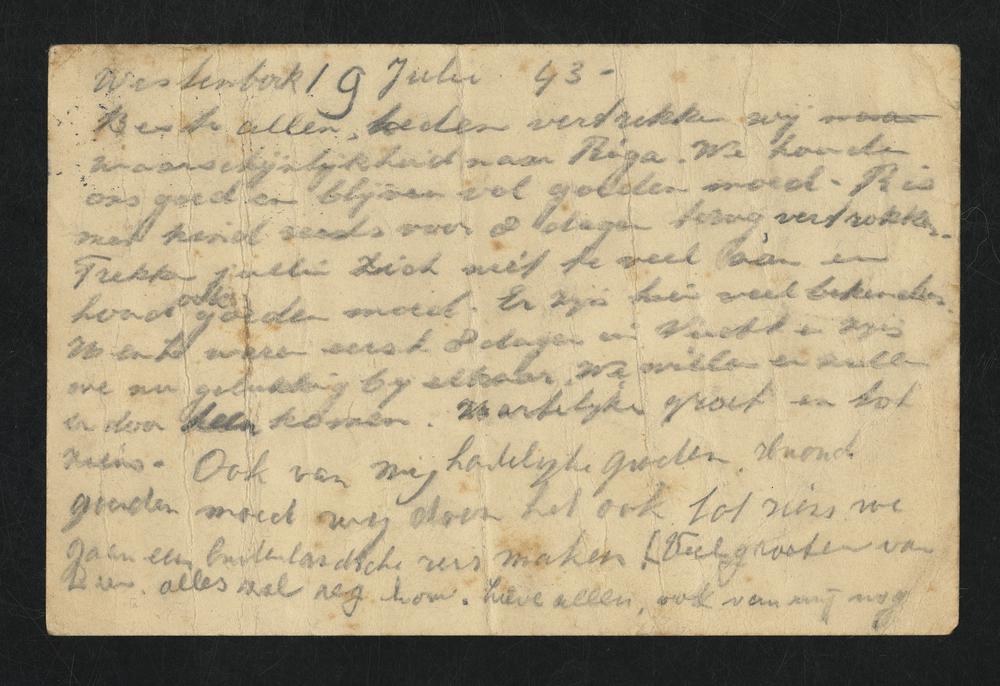 Westerbork 19 Julie 43 -
Beste allen, heden vertrekken wij
waarschijnlijkheid naar Riga. We houde
ons goed en blijven vol goeden moed. R is
met kind reeds voor 8 dagen terug vertrokken.
Trekke jullie zich niet te veel aan en
houd ook goeden moed. Er zijn hier veel bekenden.
waren eerst 8 dagen in Vucht en zijn
we nu gelukkig bij elkaar. We willen en zullen
er door heen komen. Hartelijke groet en tot
ziens. Ook van mij hartelijke groeten. Houd
goeden moed wij doen het ook tot ziens we
gaan een buitenlandsche reis maken! Veel groeten van
alles zal reg kom. Lieve allen, ook van mij nog